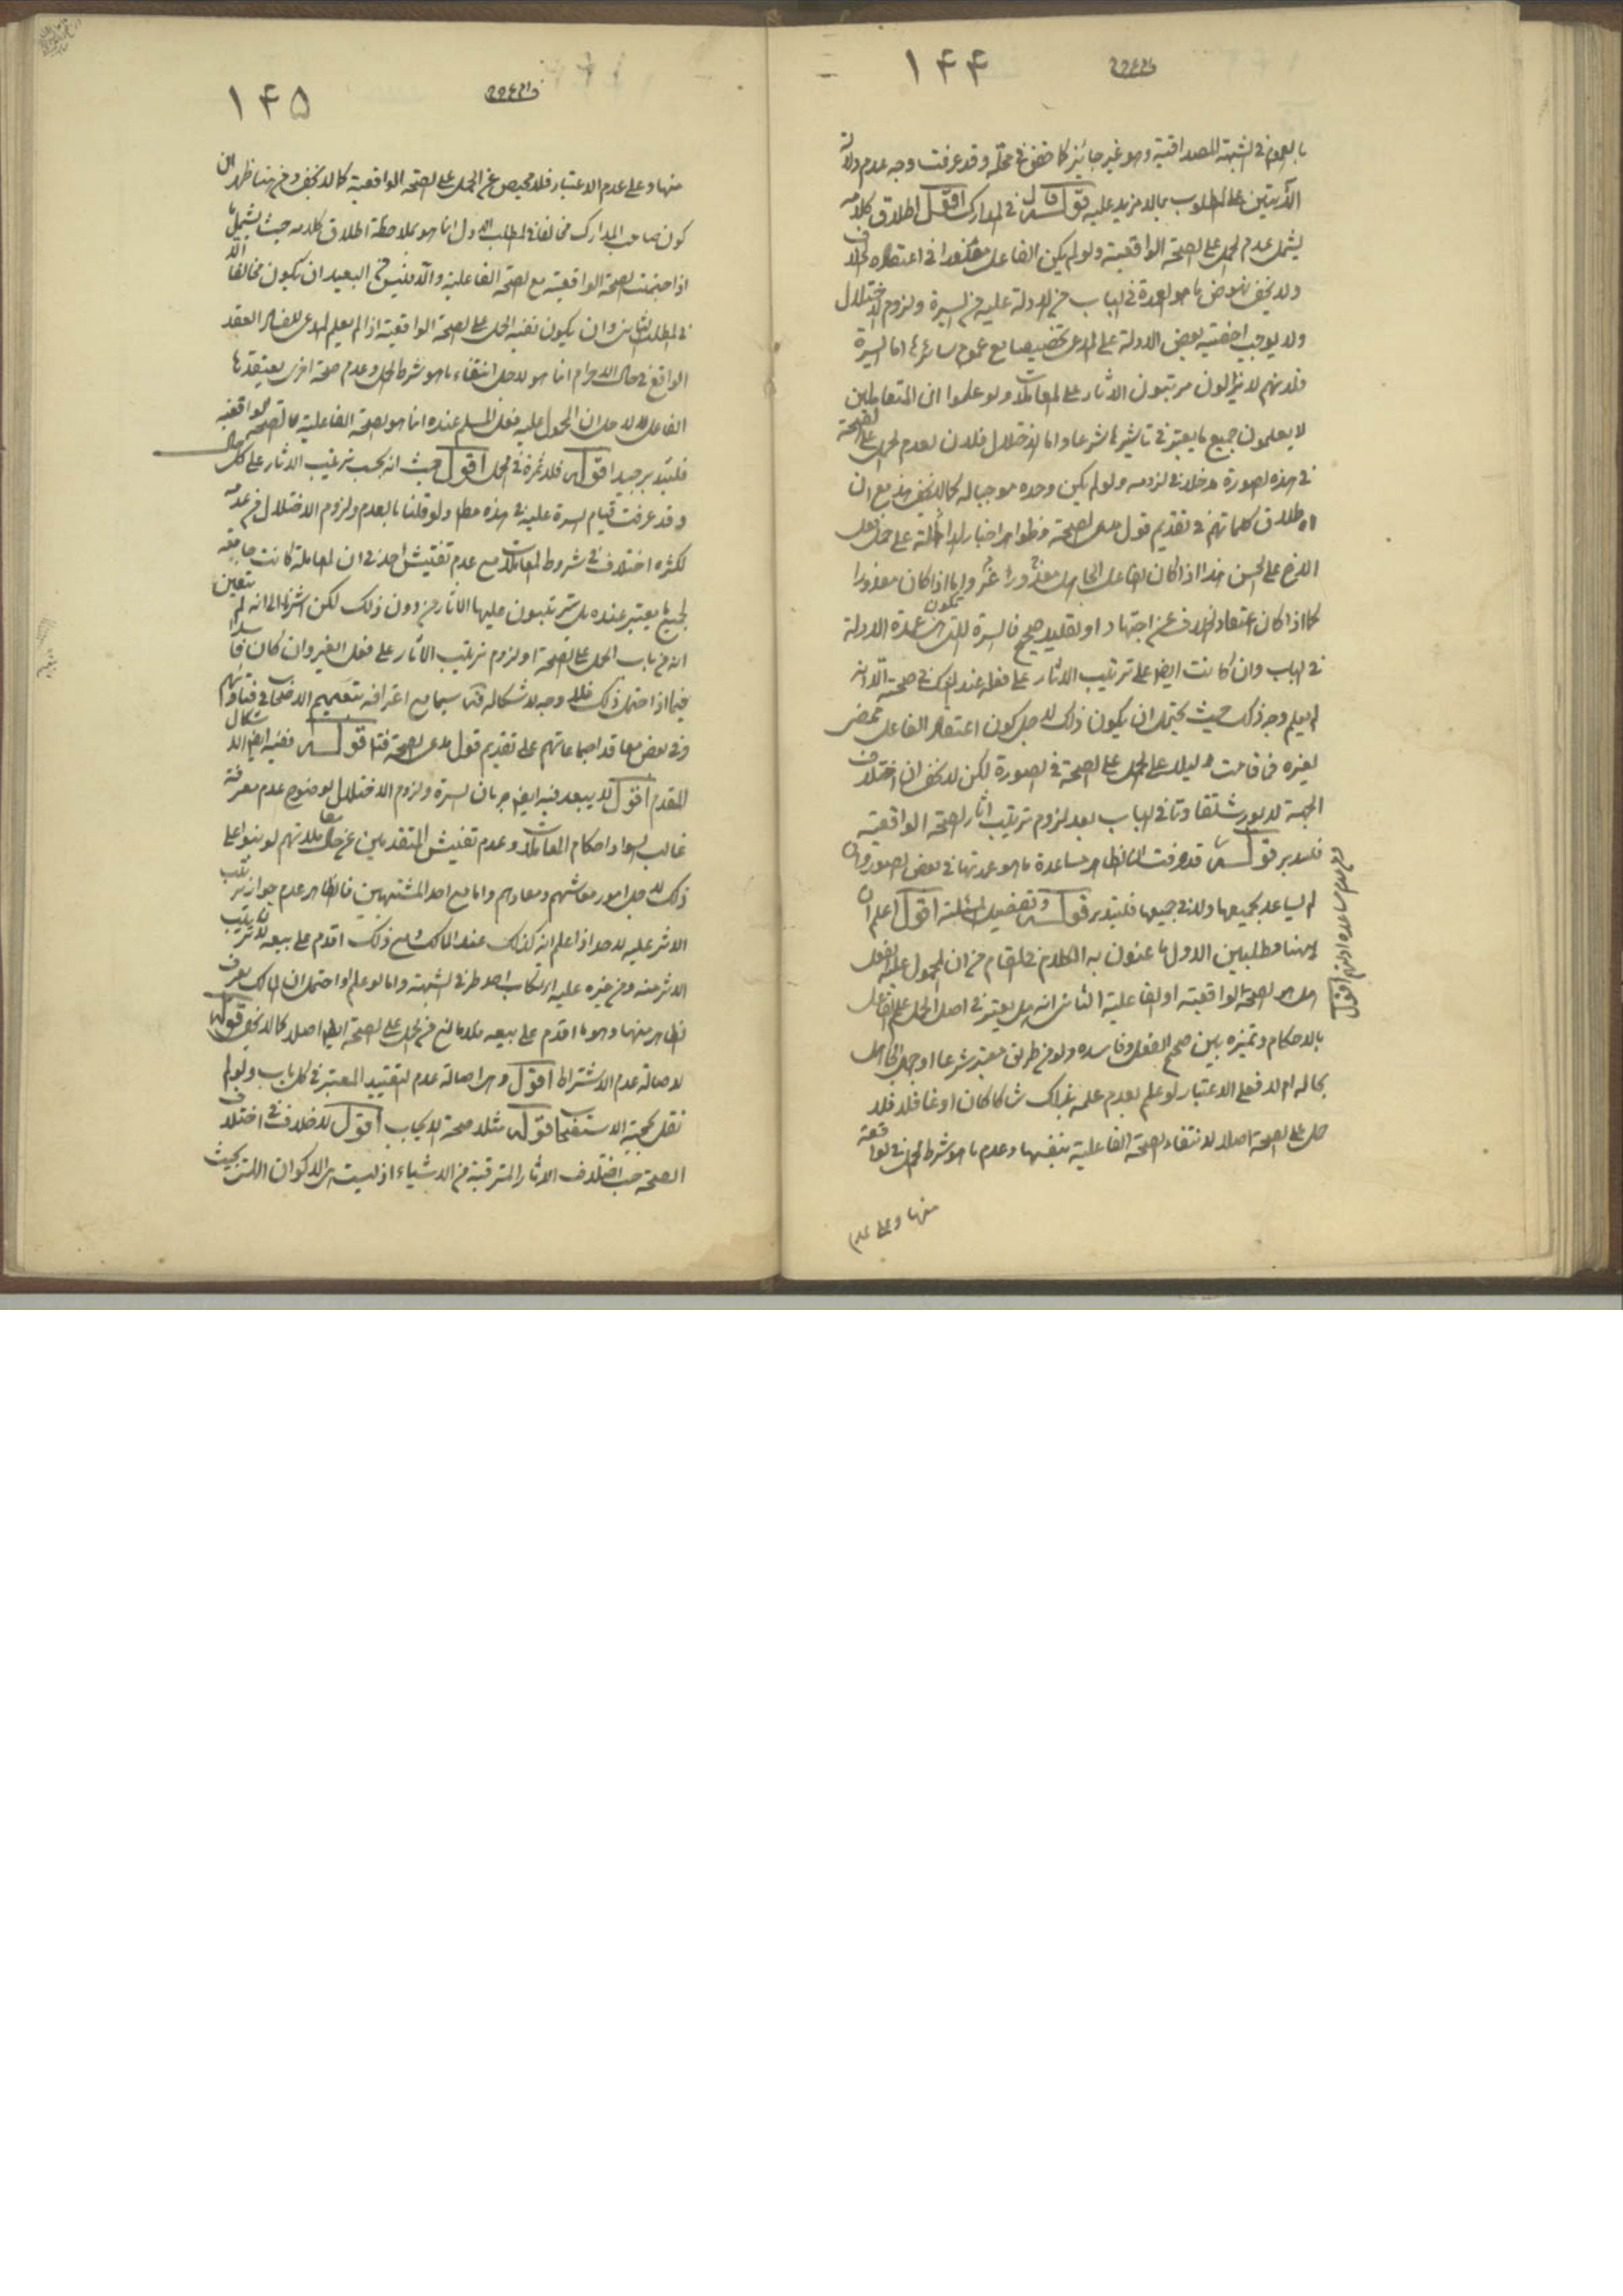 ۱۴۴
بالعموم في الشبهة المصداقية وهو غير جائز كما حقق في محله وقد عرفت وجه عدم دلالة
الآيتين على المطلوب بما لا مزيد عليه قوله قال في المدارك اقول اطلاق كلامه
يشمل عدم الحمل على الصحة الواقعية ولو لم يكن الفاعل معذورا في اعتقاده الخلاف
ولا يخفى نهوض ما هو العمدة في الباب من الادلة عليه من السيرة ولزوم الاختلال
ولا يوجب اخصية بعض الادلة على المدعى تخصيصا مع عموم سائرها اما السيرة
فلانهم لا يزالون مرتبون الاثار على المعاملات ولو علموا ان المتعاملين
لا يعلمون جميع ما يعتبر في تاثيرها شرعا واما الاختلال فلان لعدم الحمل على الصحة
في هذه الصورة مدخلا في لزومه ولو لم يكن وحده موجبا له كما لا يخفى هذا مع ان
اطلاق كلماتهم في تقديم قول مدعى الصحة وظواهر اخبار الدالة على حمل فعل
الاخ على الحسن هذا اذا كان الفاعل الجاهل معذورا غير واما اذا كان معذورا
كما اذا كان اعتقاد الخلاف عن اجتهاد او تقليد صحيح فالسيرة التي تكون عمدة الادلة
في الباب وان كانت ايضا على ترتيب الاثار على فعله عند الشك في صحته الا انه
لم يعلم وجه ذلك حيث يحتمل ان يكون ذلك لاجل كون اعتقاد الفاعل تمضى
لغيره فما قامت دليلا على الحمل على الصحة في الصورة لكن لا يخفى ان اختلاف
الجهة لا يورث تفاوتا في الباب بعد لزوم ترتيب اثار الصحة الواقعية
فليتدبر قوله قد عرفت ان الظاهر مساعدة ما هو عمدتها في بعض الصور وان
لم يساعد بجميعها ولا في جميعها فليتدبر قوله وتفصيل المسئلة اقول اعلم ان
ههنا مطلبين الاول ما عنون به الكلام في المقام من ان المحمول عليه الفعل
هل هو الصحة الواقعية او الفاعلية الثاني انه هل يعتبر في اصل الحمل علم الفاعل
بالاحكام وتميزه بين صحيح الفعل وفاسده ولو من طريق معتبر شرعا او جهل الحامل
بحاله ام لا فعلى الاعتبار لو علم بعدم علمه بذلك شاكا كان او غافلا فلا
حمل على الصحة اصلا لانتفاء الصحة الفاعلية بنفسها وعدم ما هو شرط الحمل في الواقعة
منها وعلى عدم
۱۴۵
منها وعلى عدم الاعتبار فلا محيص عن الحمل على الصحة الواقعية كما لا يخفى ومن هنا ظهر ان
كون صاحب المدارك مخالفا في المطلب الاول انما هو بملاحظة اطلاق كلامه حيث يشمل ما
اذا اجتمعت الصحة الواقعية مع الصحة الفاعلية والا فليس من البعيد ان يكون مخالفا
في المطلب الثاني وان يكون نفيه الحمل على الصحة الواقعية اذا لم يعلم المدعى للفساد العقد
الواقع في حال الاحرام انما هو لاجل انتفاء ما هو شرط الحمل وعدم صحة اخرى يعتقدها
الفاعل لا لاجل ان المحمول عليه فعل المسلم عنده انما هو الصحة الفاعلية لا الصحة الواقعية
فليتدبر جيدا قوله فلا ثمرة في الحمل اقول حيث انه يجب ترتيب الاثار على كل حال
وقد عرفت قيام السيرة عليه في هذه مطلقا ولو قلنا بالعدم ولزوم الاختلال من عدمه
لكثرة اختلاف في شروط المعاملات مع عدم تفتيش احد في ان المعاملة كانت جامعة
لجميع ما يعتبر عنده بل يترتبون عليها الاثار من دون ذلك لكن اشرنا الى انه لم يتعين
انه من باب الحمل على الصحة او لزوم ترتيب الاثار على فعل الغير وان كان فاسدا
فيما اذا احتمل ذلك فلا وجه لاشكاله فيه سيما مع اعترافه بتعميم الاصحاب في فتاويهم
وفي بعض معاقد اجماعاتهم على تقديم قول مدعى الصحة فتامل قوله ففيه ايضا الاشكال
المقدم اقول لا يبعد فيه ايضا جريان السيرة ولزوم الاختلال لوضوح عدم معرفة
غالب السواد احكام المعاملات وعدم تفتيش المتقدمين عن حال معاملاتهم لو بنوا على
ذلك لاجل امور معاشهم ومعادهم واما مع احد المشتبهين فالظاهر عدم جواز ترتيب
الاثر عليه لاحد اذا علم انه كذلك عند المالك ومع ذلك اقدم على بيعه لان ترتيب
الاثر منه ومن غيره عليه ارتكاب احد طرفي الشبهة واما لو علم او احتمل ان المالك يعرف
الظاهر منهما وهو ما اقدم على بيعه فلا مانع من الحمل على الصحة ايضا اصلا كما لا يخفى قوله
لاصالة عدم الاشتراط اقول وهى اصالة عدم التقييد المعتبر في كل باب ولو لم
نقل بحجية الاستصحاب قوله مثلا صحة الايجاب اقول لا خلاف في اختلاف
الصحة حسب اختلاف الاثار المترقبة من الاشياء اذ ليست هى الا كون الشئ بحيث